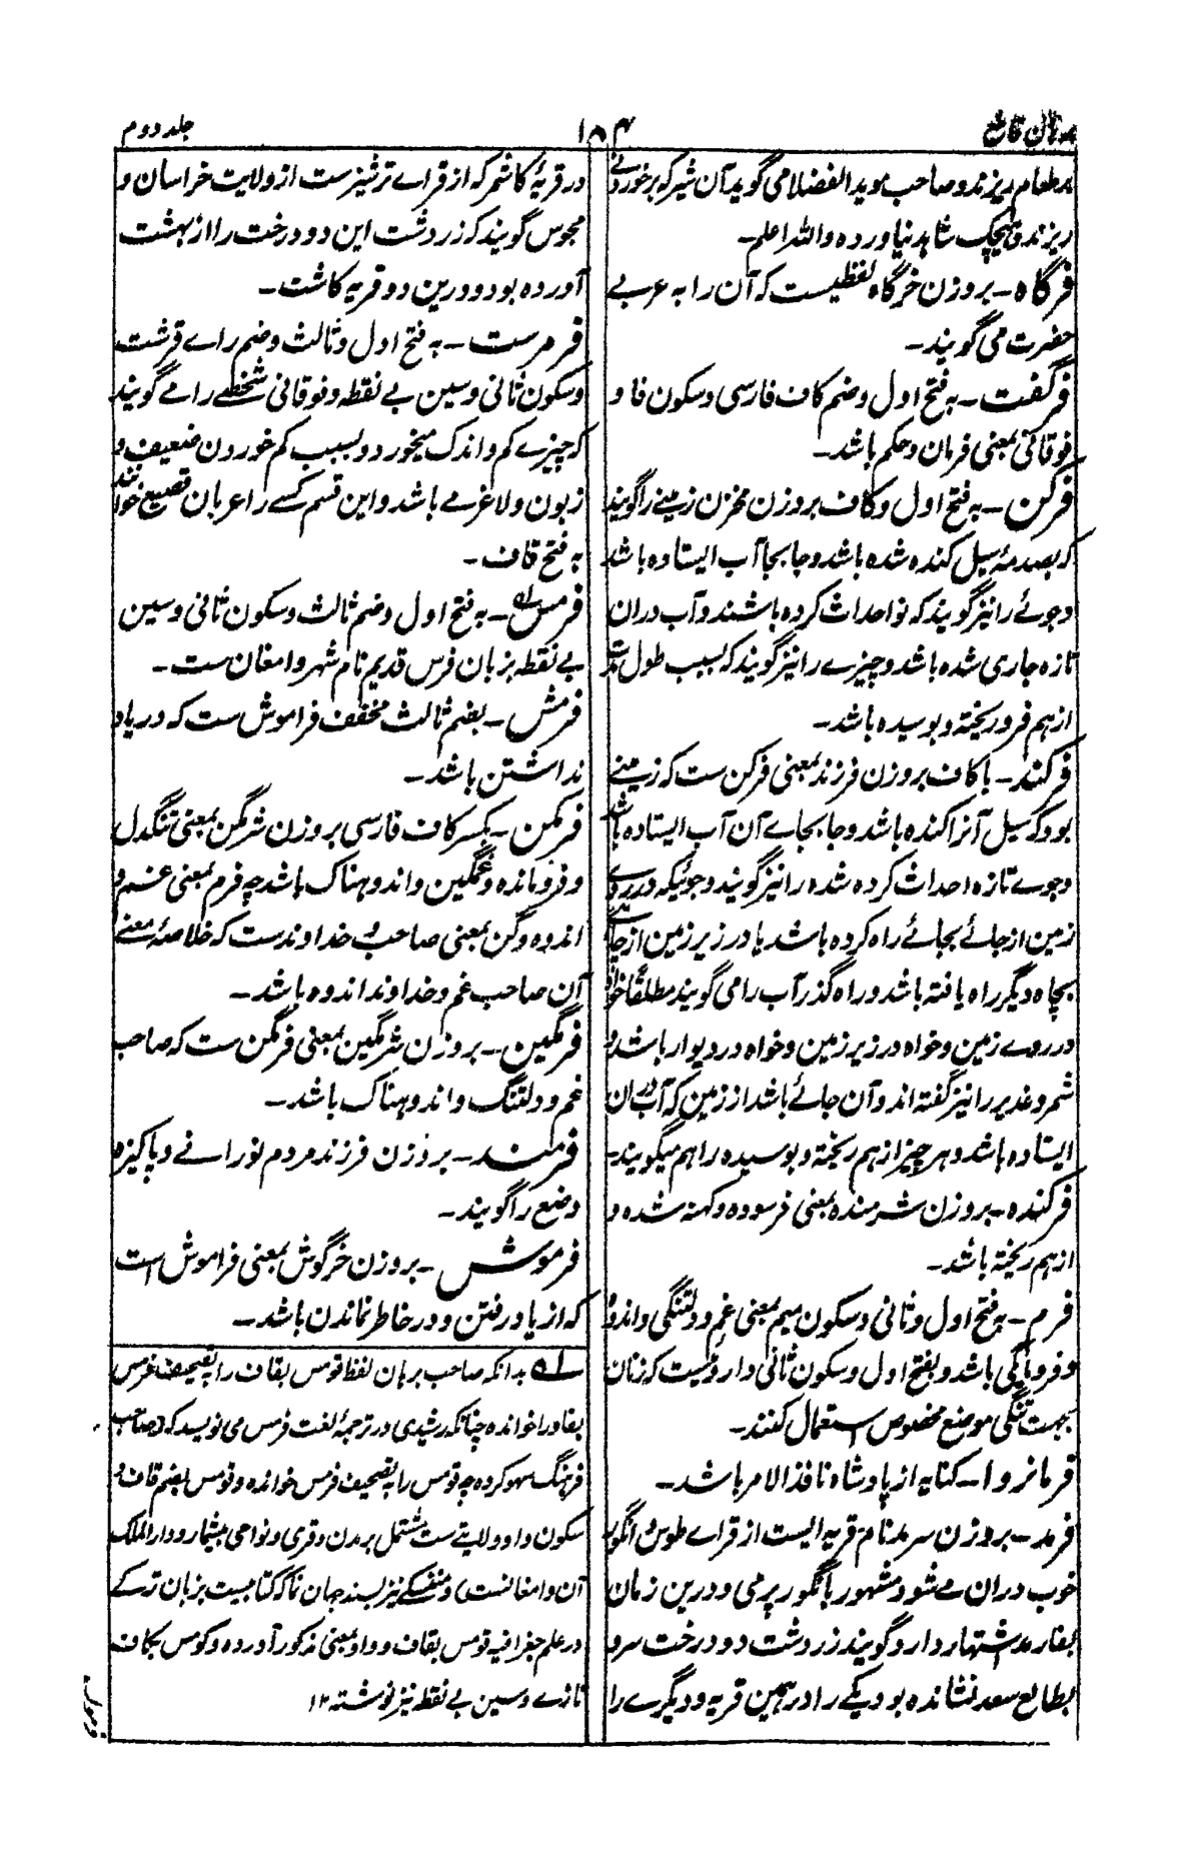 برهان قاطع
۱۵۴
جلد دوم
بر طعام ریزند و صاحب موید الفضلا می گوید آن شیر که بر خوردنی
ریزند و هیچیک شاهد نیاورده والله اعلم۔
فرگاه۔ بروزن خرگاه لفظیست که آن را به عربی
حضرت می گویند۔
فرگفت۔ به فتح اول وضم کاف فارسی وسکون فا و
فوقانی بمعنی فرمان و حکم باشد۔
فرکن۔ به فتح اول و کاف بروزن مخزن زمینے را گویند
که بصدمهٔ سیل کنده شده باشد و جابجا آب ایستاده باشد
و جوئے را نیز گویند که نو احداث کرده باشند و آب دران
تازه جاری شده باشد و چیزے را نیز گویند که بسبب طول مدت
از هم فرو ریخته و بوسیده باشد۔
فرکند۔ با کاف بروزن فرزند بمعنی فرکن ست که زمینے
بود که سیل آنرا کنده باشد و جابجاے آن آب ایستاده باشد
و جوے تازه احداث کرده شده را نیز گویند و جوئیکه در روے
زمین از جائے بجائے راه کرده باشد یا در زیر زمین از چاہے
بچاه دیگر راه یافته باشد و راه گذر آب را می گویند مطلقاً خواه
در روے زمین و خواه در زیر زمین و خواه در دیوار باشد و
شمر و غدیر را نیز گفته اند و آن جائے باشد از زمین که آب دران
ایستاده باشد و هر چیز از هم ریخته و بوسیده را هم میگویند۔
فرکنده۔ بروزن شرمنده بمعنی فرسوده و کهنه شده و
از هم ریخته باشد۔
فرم۔ به فتح اول و ثانی و سکون میم بمعنی غم و دلتنگی و اندوه
و فروماندگی باشد و بفتح اول و سکون ثانی داروئیست که زنان
بجهت تنگی موضع مخصوص استعمال کنند۔
فرمانروا۔ کنایه از پادشاه نافذ الامر باشد۔
فرمد۔ بروزن سرمد نام قریه ایست از قراے طوس و انگور
خوب دران مے شود مشهور بانگور پرمی و درین زمان
بفارمد اشتهار دارد گویند زردشت دو درخت سرو
بطالع سعد نشانده بود یکے را در همین قریه و دیگرے را
در قریهٔ کاشمر که از قراے ترشیزست از ولایت خراسان و
مجوس گویند که زردشت این دو درخت را از بهشت
آورده بود و درین دو قریه کاشت۔
فرمرست۔ به فتح اول و ثالث وضم راے قرشت
وسکون ثانی وسین بے نقطه و فوقانی شخصے را مے گویند
که چیزے کم و اندک میخورد و بسبب کم خوردن ضعیف و
زبون و لاغر مے باشد و این قسم کسے را عربان قصیع خوانند
به فتح قاف۔
فرمس۔ به فتح اول وضم ثالث وسکون ثانی وسین
بے نقطه بزبان فرس قدیم نام شهر دامغان ست۔
فرمش۔ بضم ثالث مخفف فراموش ست که در یاد
نداشتن باشد۔
فرمگن۔ بکسر کاف فارسی بروزن شرمگن بمعنی تنگدل
و فرومانده و غمگین و اندوهناک باشد چه فرم بمعنی غم و
اندوه و گن بمعنی صاحب و خداوندست که خلاصهٔ معنے
آن صاحب غم و خداوند اندوه باشد۔
فرمگین۔ بروزن شرمگین بمعنی فرمگن ست که صاحب
غم و دلتنگ و اندوهناک باشد۔
فرمند۔ بروزن فرزند مردم نورانے و پاکیزه
وضع را گویند۔
فرموش۔ بروزن خرگوش بمعنی فراموش است
که از یاد رفتن و در خاطر نماندن باشد۔
له بدانکه صاحب برهان لفظ قومس بقاف را به تصحیف فرمس
بفا و را خوانده چنانکه رشیدی در ترجمهٔ لغت فرمس می نویسد که (صاحب
فرهنگ سهو کرده چه قومس را به تصحیف فرمس خوانده و قومس بضم قاف و
سکون واو ولایتے ست مشتمل بر مدن و قری و نواحی بیشمار و دار الملک
آن دامغانست) و منفسکے نیز بسند جهان نما که کتابیست بزبان ترکے
در علم جغرافیه قومس بقاف و واو بمعنی مذکور آورده و کومس بکاف
تازے وسین بے نقطه نیز نوشته ۱۲